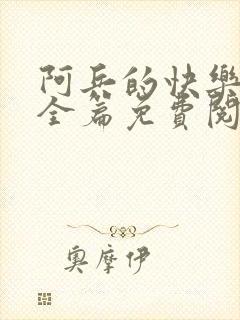 阿兵的快樂
全篇免費閱
奧摩伊